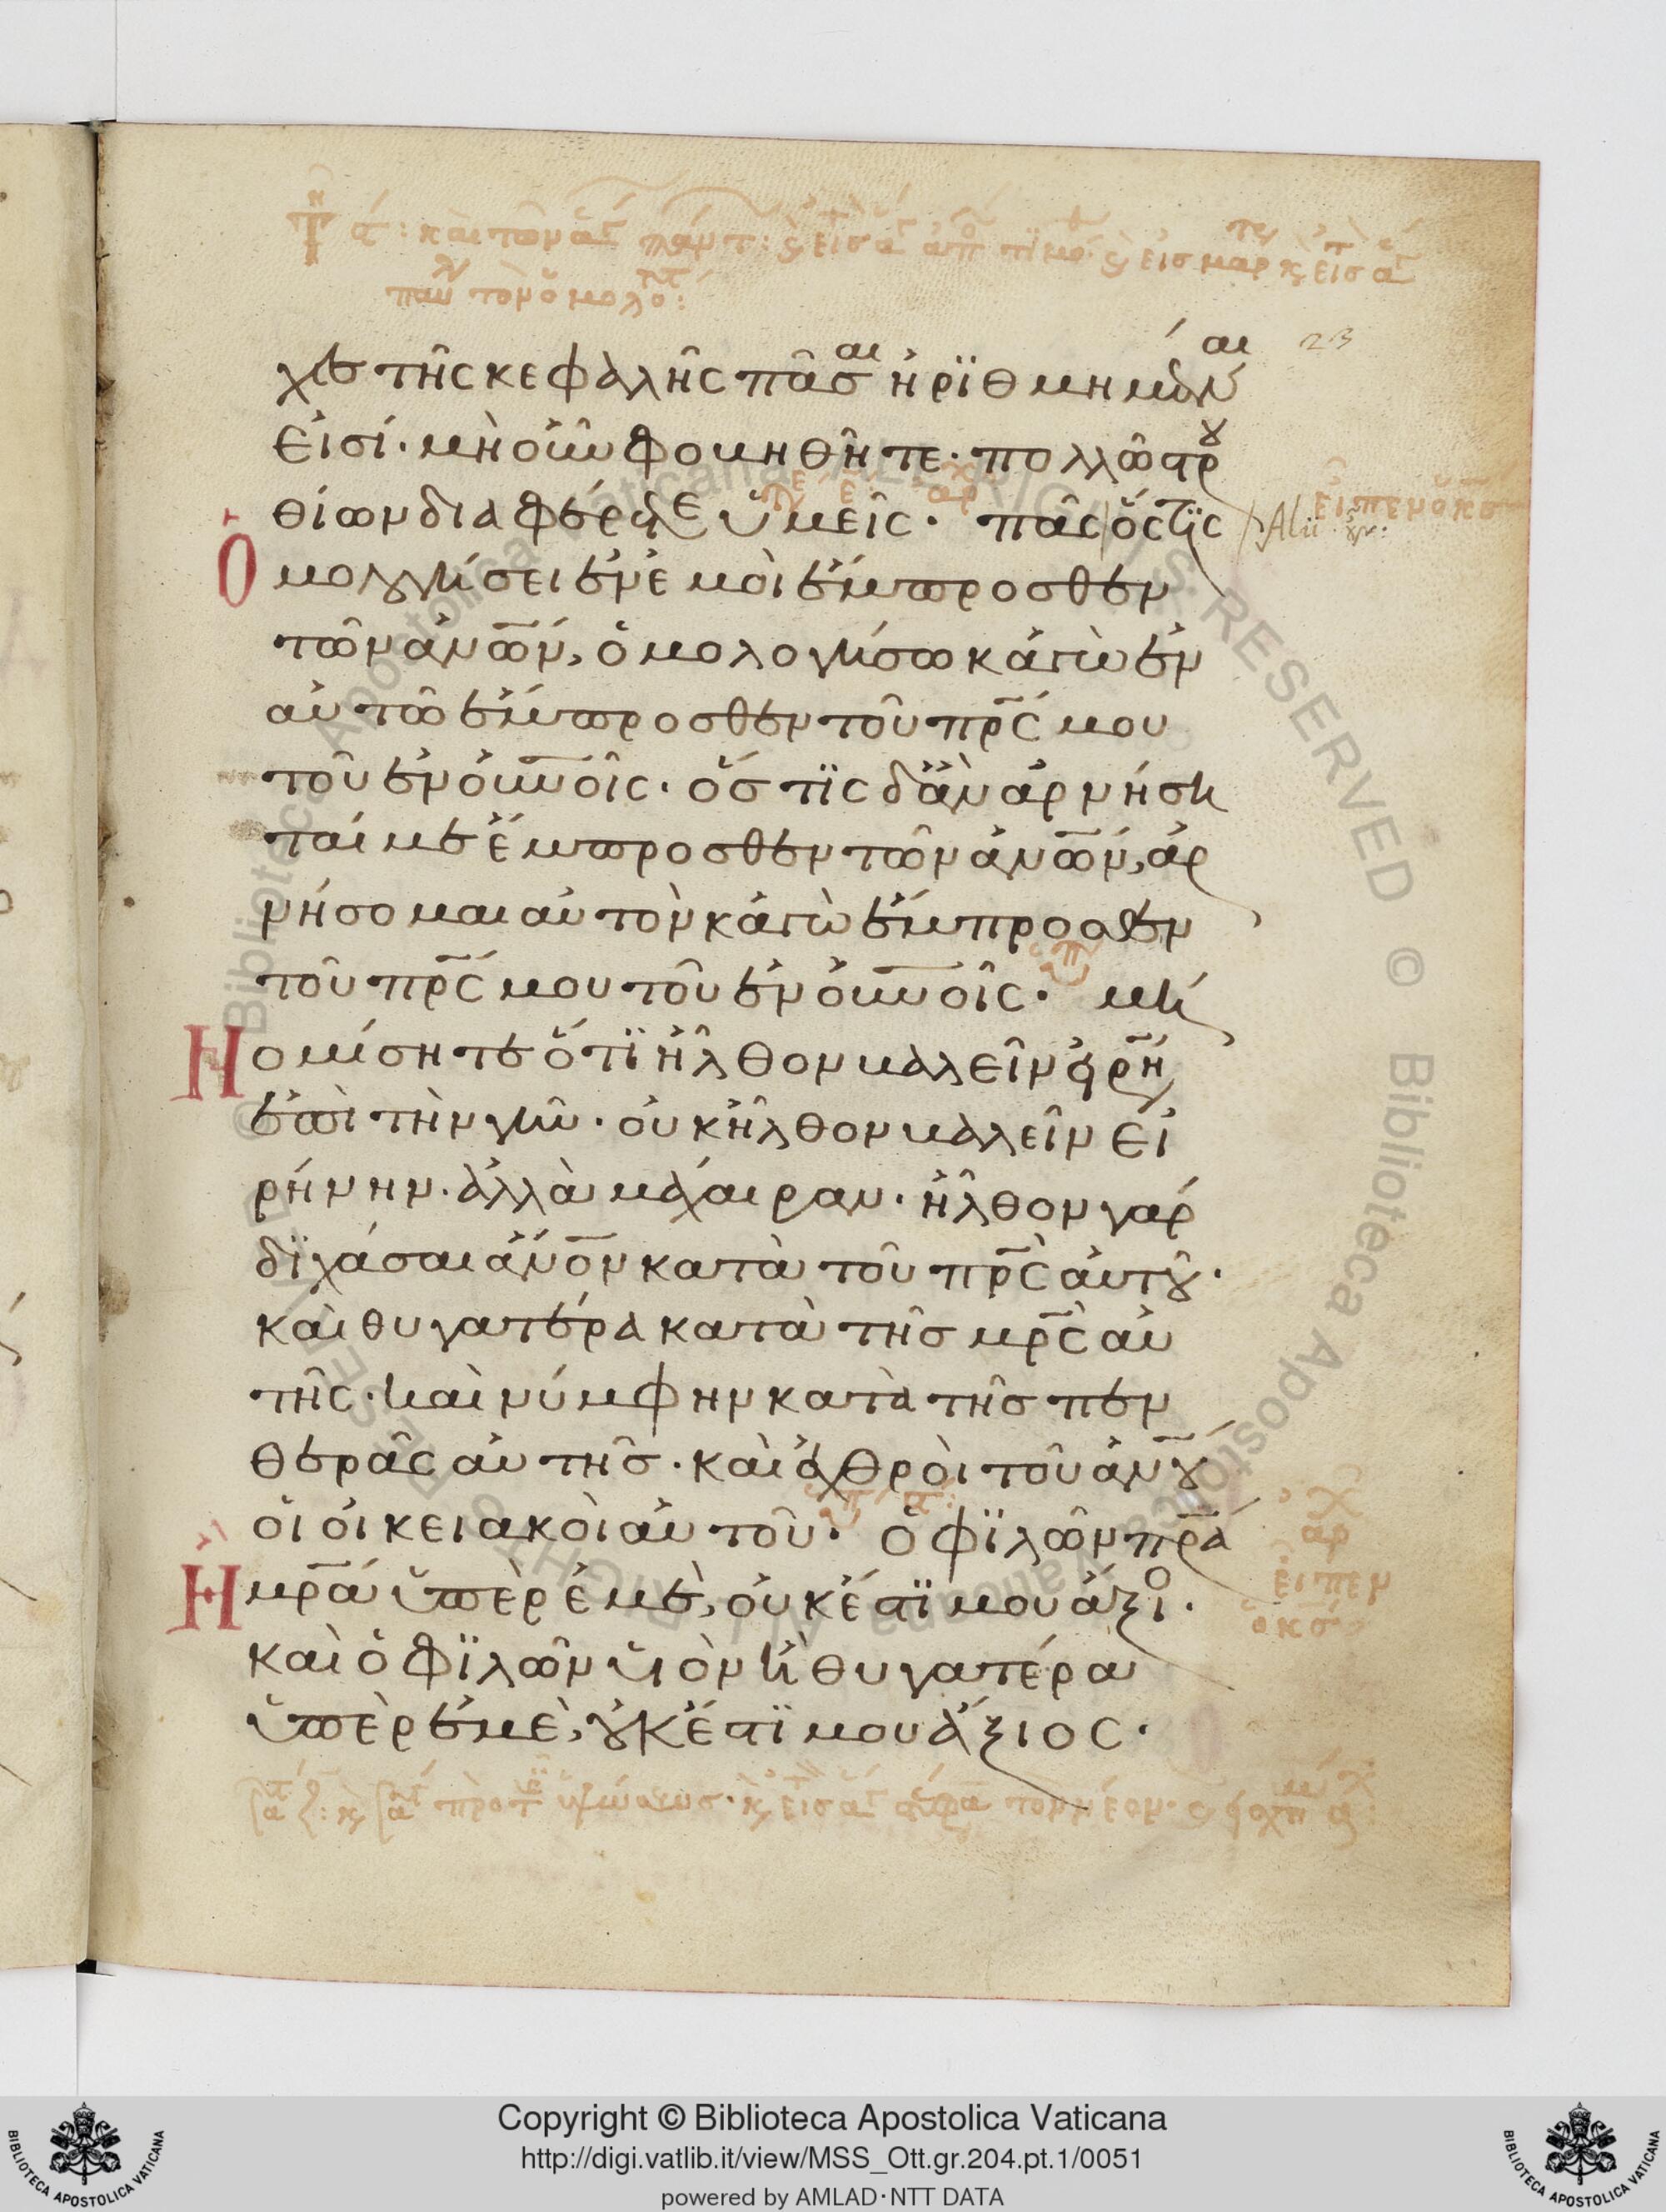 23
χες τῆς κεφαλῆς πᾶσαι ἠρϊθμημέναι
εἰσί· μὴ οὖν φοβηθῆτε· πολλῶν στρου
θίων διαφέρετε ὑμεῖς· πᾶς ὅστϊς
Alii
ὁμολογήσει ἐν ἐμοὶ ἔμπροσθεν
τῶν ἀνων, ὁμολογήσω κἀγὼ ἐν
αὐτῶ ἔμπροσθεν τοῦ πρς μου
τοῦ ἐν οὐνοῖς· ὅστϊς δ' ἂν ἀρνήση
ταί με ἔμπροσθεν τῶν ἀνων, ἀρ
νήσομαι αὐτὸν κἀγὼ ἔμπροσθεν
τοῦ πρς μου τοῦ ἐν οὐνοῖς· μὴ
Νομίσητε ὅτϊ ἦλθον βαλεῖν εἰρήνην
ἐπὶ τὴν γῆν· οὐκ ἦλθον βαλεῖν εἰ
ρήνην· ἀλλὰ μάχαιραν· ἦλθον γάρ
δϊχάσαι ἄνον κατὰ τοῦ πρς αὐτοῦ·
καὶ θυγατέρα κατὰ τῆς μρς αὐ
τῆς· καὶ νύμφην κατὰ τῆς πεν
θερᾶς αὐτῆς· καὶ ἐχθροὶ τοῦ ἀνου
οἱ οἰκειακοὶ αὐτοῦ· ὁ φϊλῶν πρα
Ἢ μρα ὑπὲρ ἐμὲ, οὐκ ἔστϊ μου ἄξιος·
καὶ ὁ φϊλῶν υἱὸν ἢ θυγατέρα
ὑπὲρ ἐμὲ, οὐκ ἔστϊ μου ἄξιος·
Copyright © Biblioteca Apostolica Vaticana
http://digi.vatlib.it/view/MSS_Ott.gr.204.pt.1/0051
powered by AMLAD·NTT DATA
BIBLIOTECA APOSTOLICA VATICANA
BIBLIOTECA APOSTOLICA VATICANA